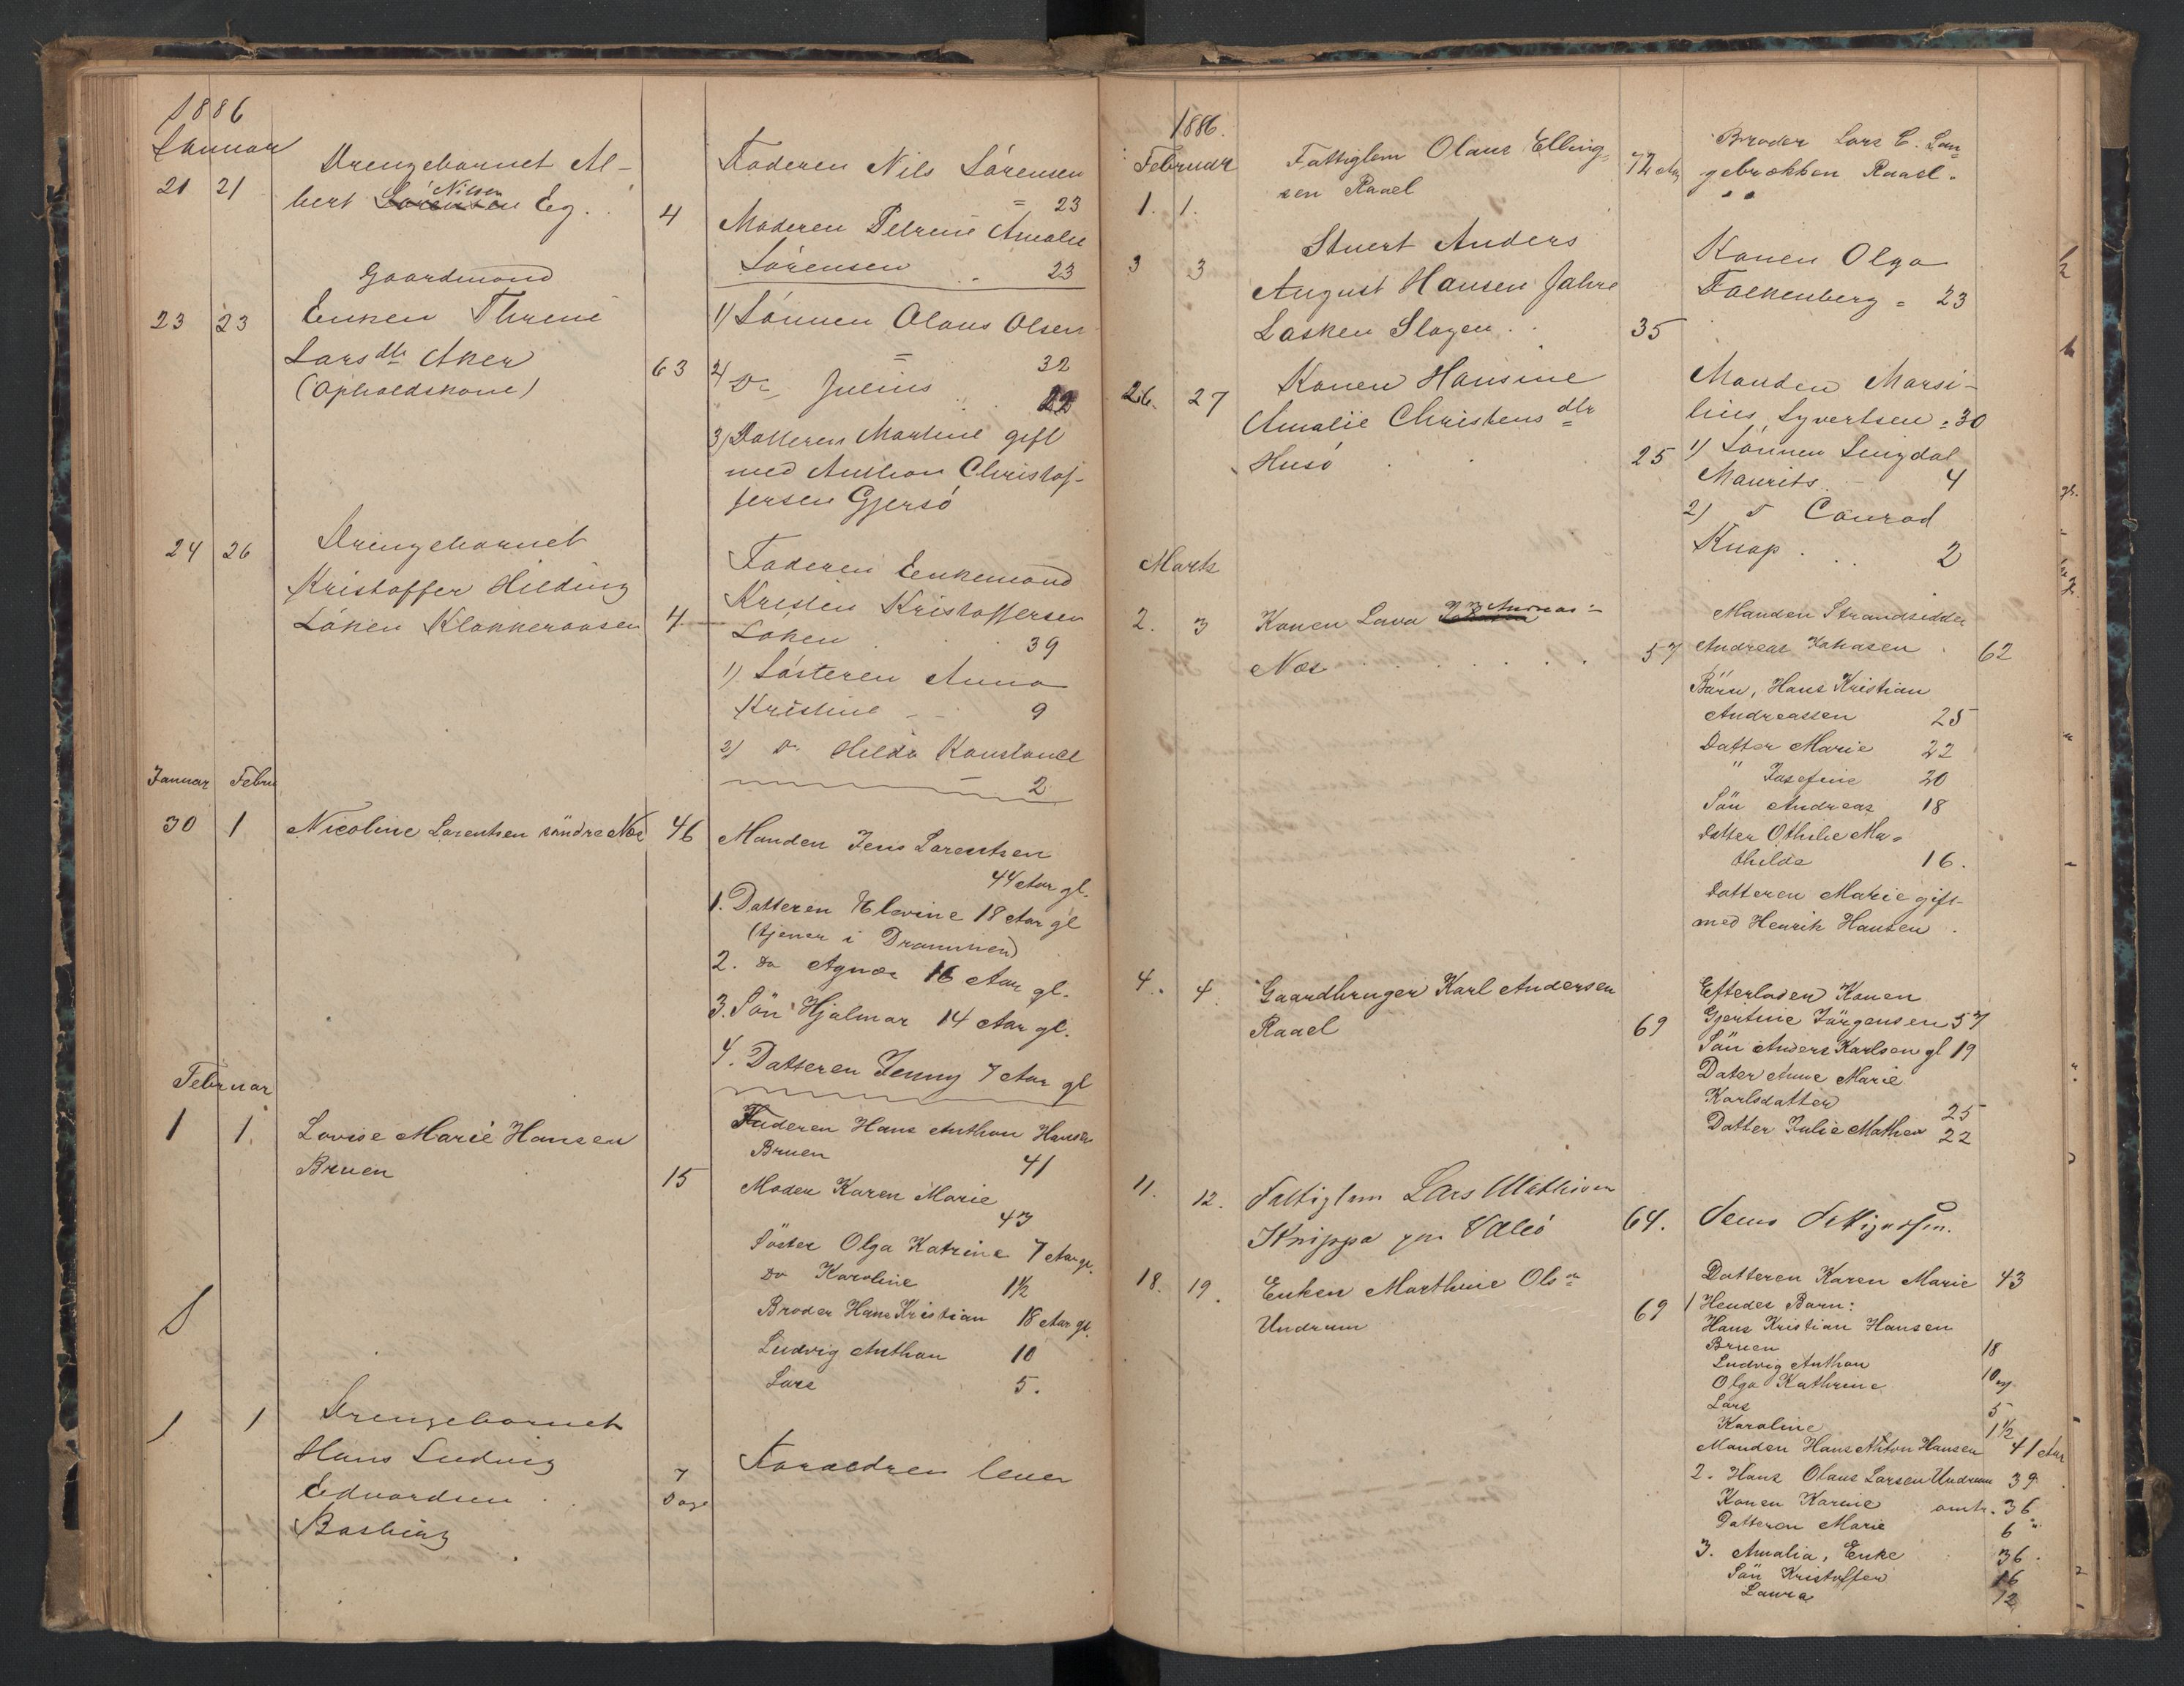 1886
Januar
21 21 Drengebarnet Al-
bert Nilsen Eg. 4
Faderen Nils Sörensen
= 23
Moderen Petrine Amalie
Sörensen .. 23
Gaardmand
23 23 Enken Threne
Lars dtr Aker 63
(Opholdskone)
1) Sönnen Olaus Olsen
= 32
2) Do Julius .. 22
3) Datteren Martine gift
med Anthon Christof-
fersen Gjersö
24 26 Drengebarnet
Kristoffer Hilding
Löken Klokkeraasen 4
Faderen Enkemand
Kristen Kristoffersen
Löken . . 39
1) Sösteren Anna
Kristine - - 9
2) Do Hilda Konstance
- 2
Januar Febru
30 1 Nicoline Lorentsen söndre Nes 46
Manden Jens Lorentsen
44 Aar gl.
1. Datteren Elevine 18 Aar gl
(tjener i Drammen)
2. Do Agnes 16 Aar gl.
3. Sön Hjalmar 14 Aar gl.
4. Datteren Jenny 7 Aar gl
Februar
1 1. Lovise Marie Hansen
Bruen 15
Faderen Hans Anthon Hansen
Bruen 41
Moder Karen Marie
43
Söster Olga Katrine 7 Aar gl.
Do Karoline 1½
Broder Hans Kristian 18 Aar gl.
Ludvig Anthon 10
Lars 5.
1 1 Drengebarnet
Hans Ludvig
Edvardsen .
Basberg
7
Dage
Foraeldren lever
1886.
Februar
1. 1. Fattiglem Olaus Elling-
sen Raael
72 Aar
Broder Lars E. Lan-
gebrekken Raael.
3 3 Stuert Anders
August Hansen Jahre
Lasken Slagen . . 35
Konen Olga
Falkenberg = 23
26. 27 Konen Hansine
Amalie Christens dtr
Husö . . 25
Manden Marsi-
lius Syvertsen = 30
1) Sönnen Lingdal
Maurits - 4
2) Conrad
Knap . . . 2
Marts
2. 3 Konen Lava Andreas
Nes . . . . . . 57
Manden Strandsidder
Andreas Johasen . 62
Börn, Hans Kristian
Andreassen 25
Datter Marie 22
" Josefine 20
Sön Andreas 18
Datter Othilie Ma-
thilde 16.
Datteren Marie gift
med Henrik Hansen .
4. 4. Gaardbruger Karl Andersen
Raael 69
Efterladen Konen
Gjertine Jörgensen 57
Sön Anders Karlsen gl 19
Dater Anne Marie
Karlsdatter 25
Datter Julie Mathea 22
11. 12. Fattiglem Lars Mathisen
Knippa paa Valeö 64.
18. 19. Enken Marthine Ols
Undrum 69
Datteren Karen Marie 43
1 Hendes Barn:
Hans Kristian Hansen
Bruen 18
Ludvig Anthon 10
Olga Kathrine 7
Lars 5
Karoline 1½
Manden Hans Anton Hansen 41 Aar
2. Hans Olaus Larsen Undrum 39
Konen Karine omtr. 36
Datteren Marie 6
3. Amalia, Enke 36
Sön Kristoffer 16
Laura 12